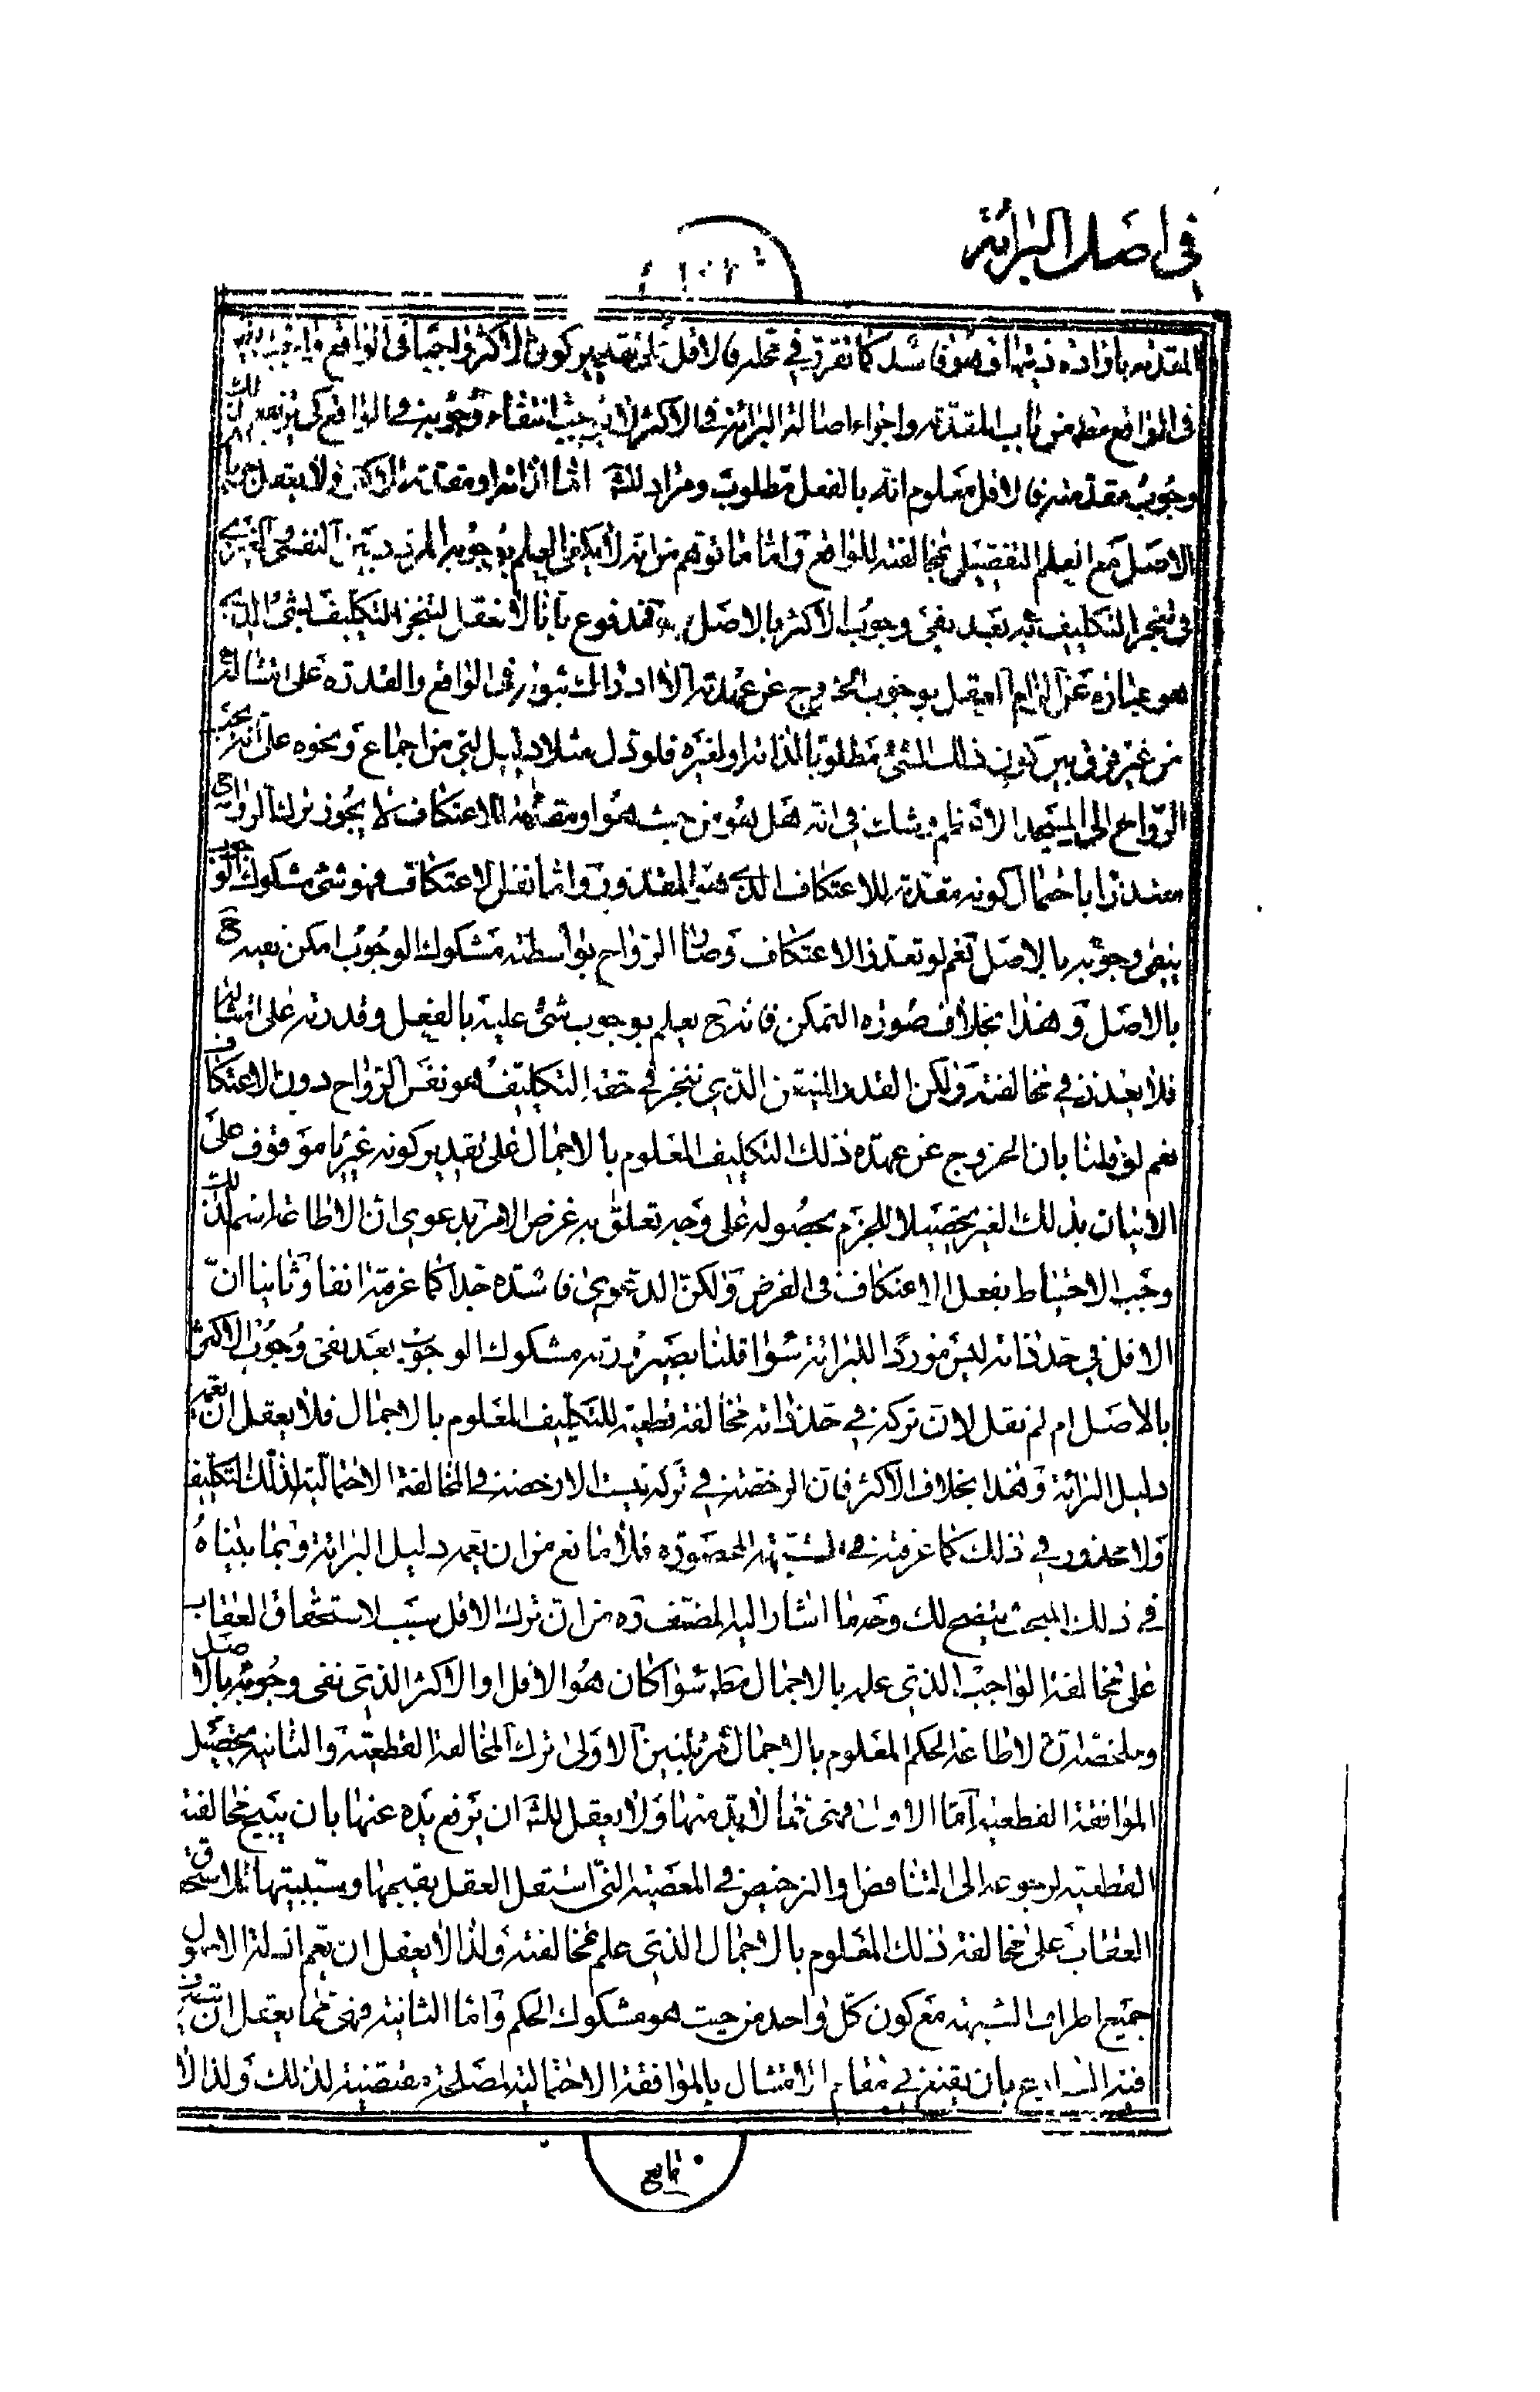 في اصل البرائة
المقدمة بارادة ذيها فهو فاسد كما تقرر في محله فالاقل على تقدير كون الاكثر واجبا في الواقع واجب
في الواقع مطلقا من باب المقدمة واجراء اصالة البرائة في الاكثر لا يوجب انتفاء وجوبه في الواقع كي يرتفع بذلك
وجوب مقدمته فالاقل معلوم انه بالفعل مطلوب ومراد للشه اما لذاته او مقدمة للاكثر ولا يعقل
الاصل مع العلم التفصيلي بمخالفته للواقع واما ما توهم من انه لا يكفي العلم بوجوبه المردد بين النفسي والغيري
في تنجز التكليف به بعد نفي وجوب الاكثر بالاصل فمدفوع بانا لا نعقل لتنجز التكليف بشئ الذي
هو عبارة عن الزام العقل بوجوب الخروج عن عهدته الا ادراك ثبوته في الواقع والقدرة على امتثاله
من غير فرق بين كون ذلك الشئ مطلوبا لذاته او لغيره فلو دل مثلا دليل لبي من اجماع ونحوه على انه يجب
الرواح الى المسجد الا انه علم وشك في انه هل هو من حيث هو او مقدمة للاعتكاف لا يجوز ترك الرواح
معتذرا باحتمال كونه مقدمة للاعتكاف الذي هو المقدور واما نفس الاعتكاف فهو شئ مشكوك الوجوب
ينفى وجوبه بالاصل نعم لو تعذر الاعتكاف وصار الرواح بواسطته مشكوك الوجوب امكن نفيه ح
بالاصل وهذا بخلاف صورة التمكن فانه ح يعلم بوجوب شئ عليه بالفعل وقدرته على امتثاله
فلا يعذر في مخالفته ولكن القدر المتيقن الذي تنجز في حقه التكليف هو نفس الرواح دون الاعتكاف
نعم لو قلنا بان الخروج عن عهدة ذلك التكليف المعلوم بالاجمال على تقدير كونه غيريا موقوف على
الاتيان بذلك الغير تحصيلا للجزم بحصوله على وجه تعلق به غرض الامر بدعوى ان الاطاعة اسم لذلك
وجب الاحتياط بفعل الاعتكاف في الفرض ولكن الدعوى فاسدة جدا كما عرفته انفا وثانيا ان
الاقل في حد ذاته ليس موردا للبرائة سواء قلنا بصيرورته مشكوك الوجوب بعد نفي وجوب الاكثر
بالاصل ام لم نقل لان تركه في حد ذاته مخالفة قطعية للتكليف المعلوم بالاجمال فلا يعقل ان يعمه
دليل البرائة وهذا بخلاف الاكثر فان الرخصة في تركه ليست الا رخصة في المخالفة الاحتمالية لذلك التكليف
ولا محذور في ذلك كما عرفته في الشبهة المحصورة فلا مانع من ان يعمه دليل البرائة وبما بيناه
في ذلك المبحث يتضح لك وجه ما اشار اليه المصنف ره من ان ترك الاقل سبب لاستحقاق العقاب
على مخالفة الواجب الذي علم بالاجمال مطلقا سواء كان هو الاقل او الاكثر الذي نفي وجوبه بالاصل
وملخصه ان لاطاعة الحكم المعلوم بالاجمال مرتبتين الاولى ترك المخالفة القطعية والثانية تحصيل
الموافقة القطعية اما الاولى فهي مما لا بد منها ولا يعقل للشه ان يرفع يده عنها بان يبيح مخالفته
القطعية لرجوعه الى التناقض او الترخيص في المعصية التي استقل العقل بقبحها وسببيتها لاستحقاق
العقاب على مخالفة ذلك المعلوم بالاجمال الذي علم بمخالفته ولذا لا يعقل ان يعم ادلة الاصول
جميع اطراف الشبهة مع كون كل واحد من حيث هو مشكوك الحكم واما الثانية فهي مما يعقل ان يتصرف
فيه الشارع بان يقتنع في مقام الامتثال بالموافقة الاحتمالية لمصلحة مقتضية لذلك ولذا لا
تابع